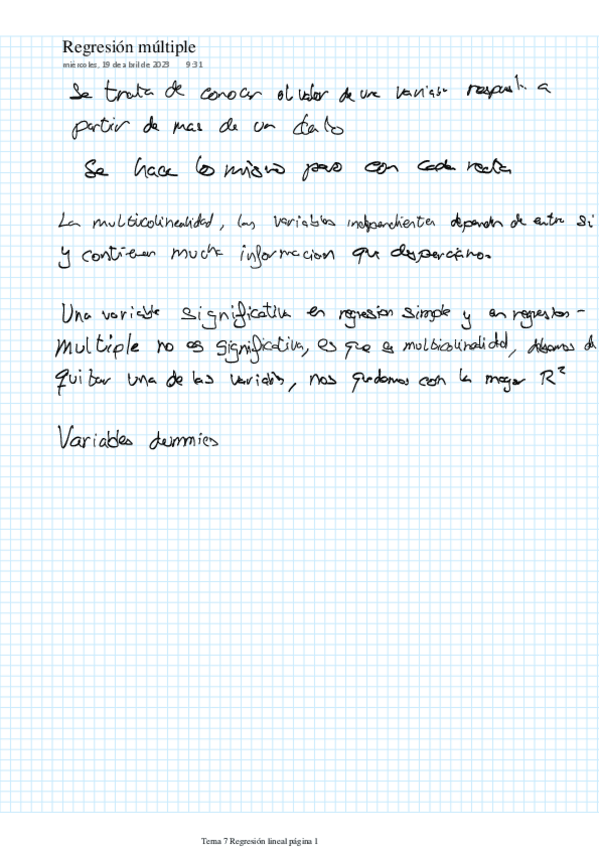 Regresión múltiple
miércoles, 19 de abril de 2023 9:31
Se trata de conocer el valor de una variable respuesta a
partir de mas de un dato
Se hace lo mismo pero con cada recta
La multicolinealidad, las variables independientes dependen de entre si
y contienen mucha informacion que
Una variable significativa en regresion simple y en regresion-
multiple no es significativa, es que es multicolinealidad, debemos de
quitar una de las variables, nos quedamos con la mayor R²
Variables dummies
Tema 7 Regresión lineal página 1